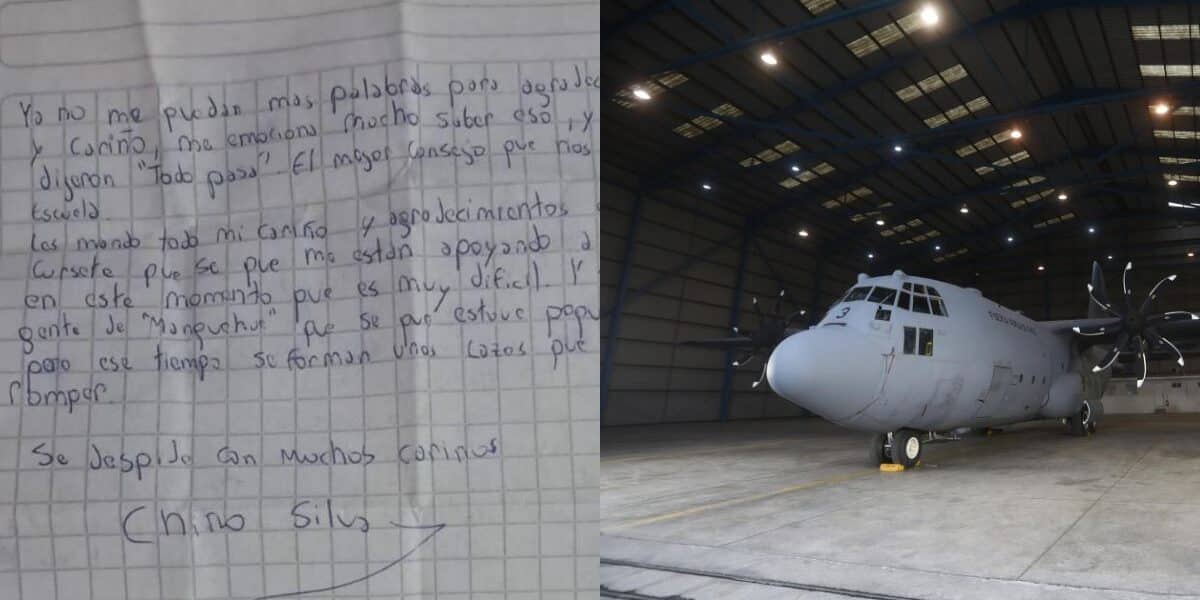 Ya no me quedan mas palabras para agradec
y cariño, me emociona mucho saber eso, y
dijeron "Todo pasa". El mayor consejo que nos
Escuela.
Les mando todo mi cariño y agradecimientos
Cursete que se que me están apoyando a
en este momento que es muy dificil. Y
gente de "Manquehue" que se que estuve poqu
pero ese tiempo se forman unos lazos que
romper.
Se despide con muchos cariños
Chino Silva
3